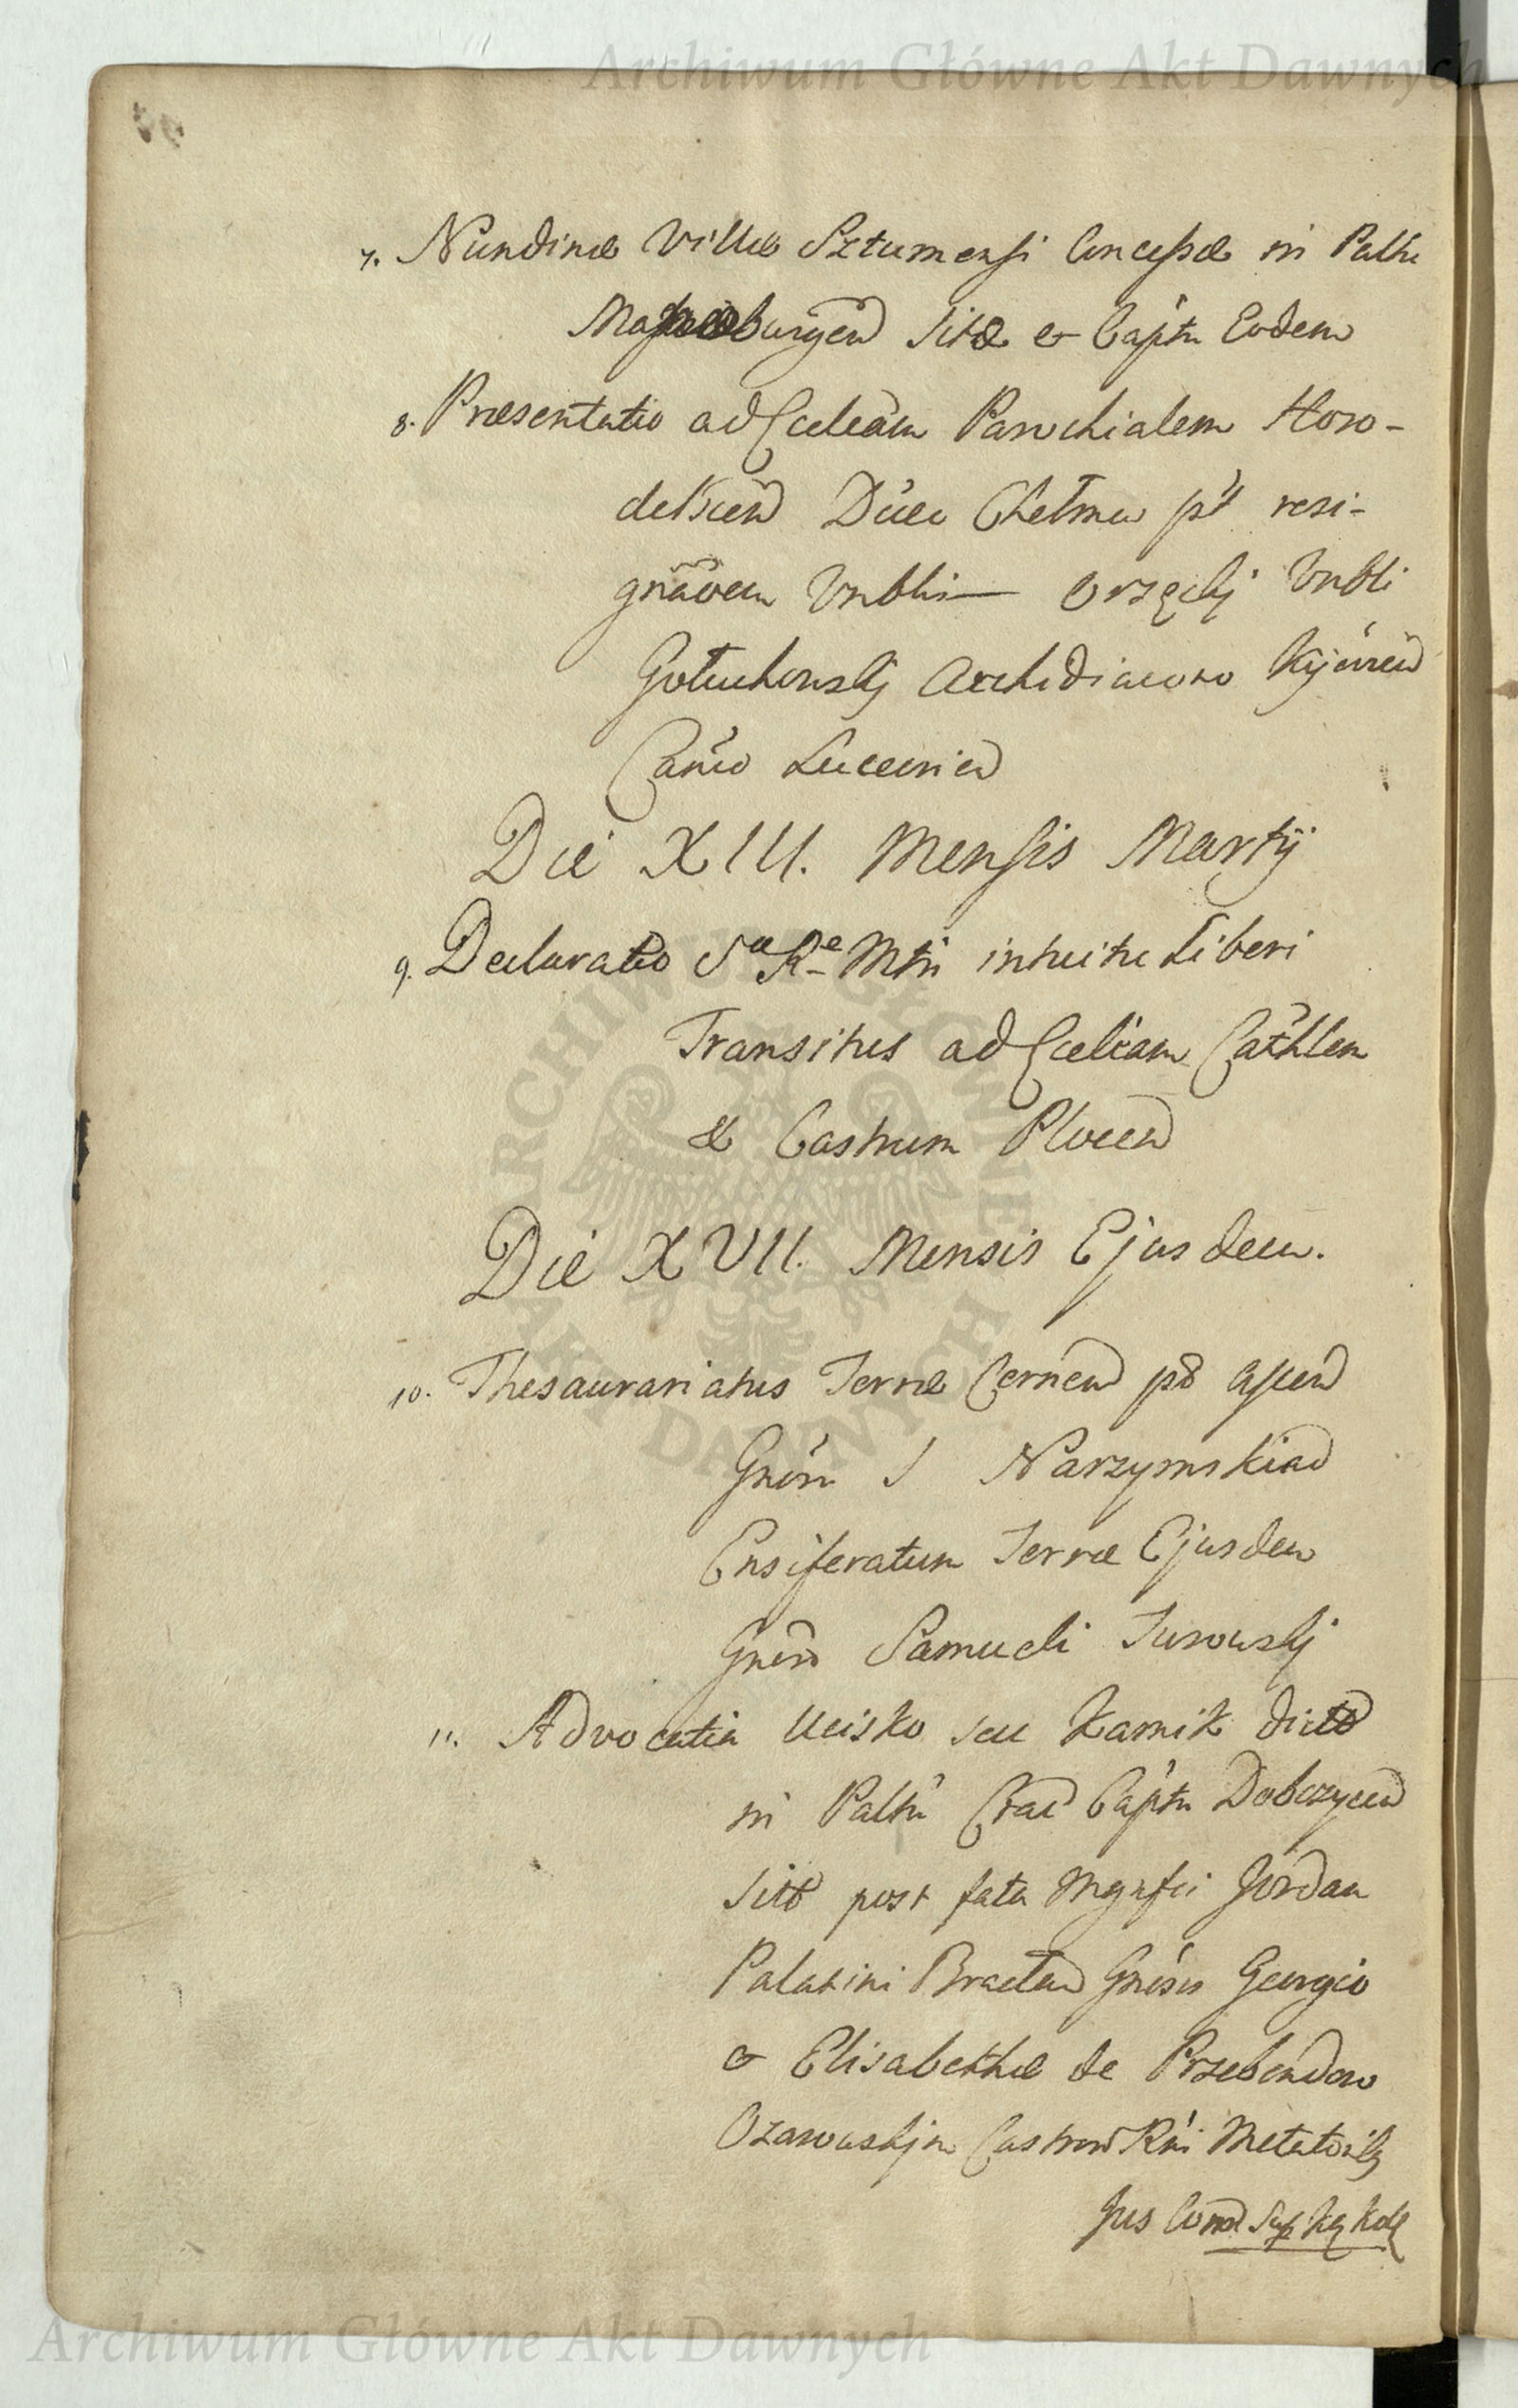 Archiwum Główne Akt Dawnych
7. Nundinæ Villæ Sztumensi Concessæ in Palttu
burgen Sitæ & Capttu Eodem
8. Præsentatio ad Eccleam Parochialem Horo-
delscen Diiec Chełmen pt resi-
gnãoem Vnblis — Orzęcki Vnbli
Gołuchowskj Archidiacono Kijovien
Canco Luceorien
Die XIII. Mensis Martij
9. Declaratio Sæ Ræ Mttis intuitu Liberi
Transitus ad Eccliam Cathlem
& Castrum Plocen
Die XVII. Mensis Ejusdem.
10. Thesaurariatus Terræ Cernen pt Ascen
Gnosi J Narzymski ad
Ensiferatum Terræ Ejusdem
Gnoso Samueli Jurowskj
11. Advocatia seu Kamik dicta
in Palttu Crac Capttu Dobczycen
Sita post fata Mgnfci Jordan
Palatini Bracłav Gnosis Georgio
& Elisabethæ de Przebendow
Ozarowskjm Castror Rni Metatoribus
Jus Com
ARCHIWUM GŁÓWNE
AKT DAWNYCH
Archiwum Główne Akt Dawnych